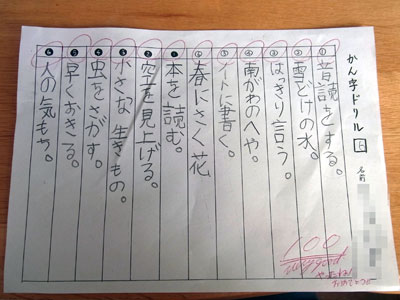 かん字ドリル 上
名前
① 音読をする。
② 雪どけの水。
③ はっきり言う。
④ 南がわのへや。
⑤ ノートに書く。
⑥ 春にさく花
❶ 本を読む。
❷ 空を見上げる。
❸ 小さな生きもの。
❹ 虫をさがす。
❺ 早くおきる。
❻ 人の気もち。
100
very good
やったね!